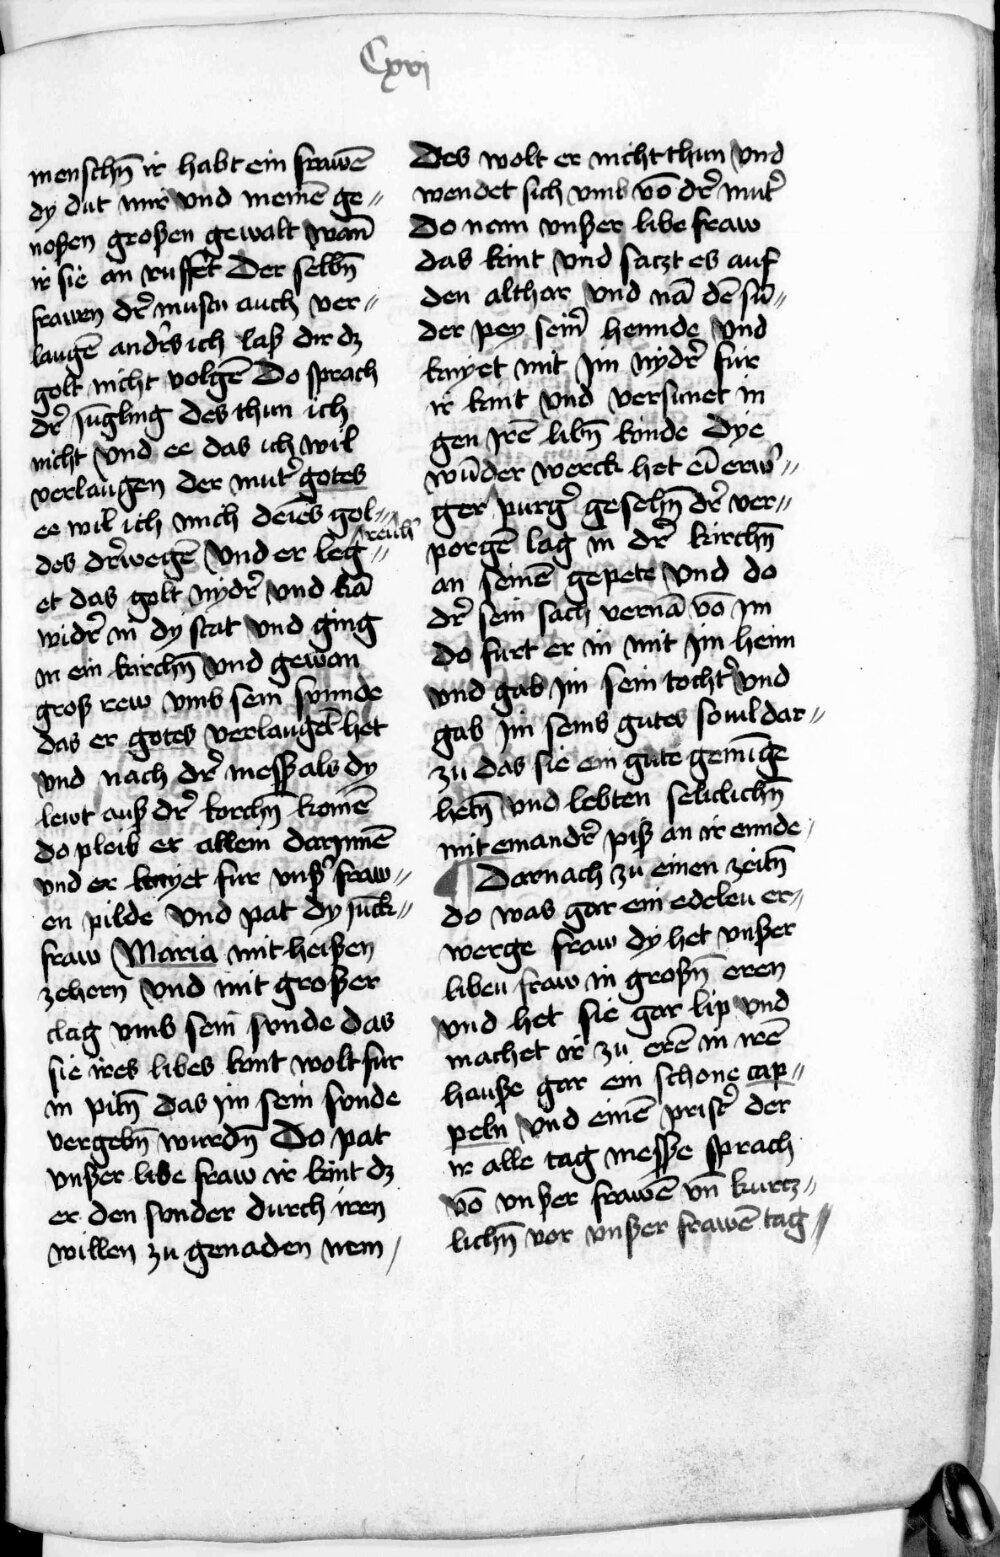 Cxvj
menschñ ir habt ein frawē
dy dut mir vnd meinē ge〃
noßen großen gewalt wañ
ir sie an ruffet Der selbñ
frawen dr̄ mustu auch ver〃
laugē andr̄s ich laß dir dz
golt nicht volgē Do sprach
dr̄ jūgling des thun ich
nicht vnd ee das ich wil
verlaugen der mutr̄ gotes
ee wil ich mich deīes gol〃
des dr̄wegē vnd er leg〃
et das golt nydr̄ vnd kā
widr̄ in dy stat vnd ging
in ein kirchñ vnd gewan
groß rew vmb sein sunnde
das er gotes verlaugēt het
vnd nach dr̄ messß als dy
lewt auß dr̄ korchñ komē
do pleib er allein darynnē
vnd er knyet fur vnß̄ fraw〃
en pilde vnd pat dy jūck〃
fraw Maria mit heißen
zehern vnd mit großer
clag vmb sein sunde das
sie ires libes kint wolt fur
in pitñ das jm sein sonde
vergebñ wurdñ Do pat
vnßer libe fraw ir kint dz
er den sonder durch iren
willen zu genaden nem /
Des wolt er nicht thun vnd
wendet sich vmb vō dr̄ mutr̄
Do nam vnßer libe fraw
das kint vnd saczt es auf
den althar vnd nā dē sū〃
der pey seinr̄ hennde vnd
knyet mit jm nydr̄ fur
ir kint vnd versunet in
gen jrē libñ kinde Dye
wūder werck het eī erw̄〃
reich̄
ger purgr̄ gesehñ dr̄ ver〃
porgē lag in dr̄ kirchñ
an seinē gepete vnd do
dr̄ sein sach vernā vō jm
do furt er in mit jm heim
vnd gab jm sein tochtr̄ vnd
gab jm seins gutes souil dar〃
zu das sie ein gute gemīge
hetñ vnd lebten seliclichñ
mit einandr̄ piß an ir ennde /
¶ Darnach zu einen zeitñ
do was gar ein edeleu er〃
werge fraw dy het vnßer
libeu fraw in großñ eren
vnd het sie gar lip vnd
machet ir zu erē in irē
hauße gar ein schone cap〃
peln vnd einē pristr̄ der
ir alle tag messße sprach
vō vnßer frawē vñ kurcz〃
lichñ vor vnßer frawē tag〃